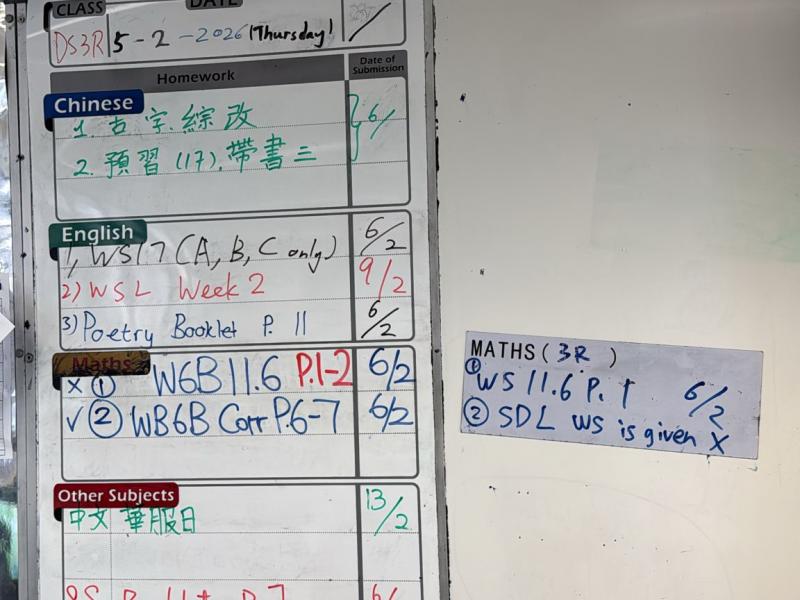 CLASS DATE
DS3R 5-2-2026 (Thursday)
Homework Date of Submission
Chinese
1. 古字.綜改 6/
2. 預習 (17).帶書三
English
1, WS17 (A, B, C only) 6/2
2) WSL Week 2 9/2
3) Poetry Booklet P. 11 6/2
Maths
x ① W6B 11.6 P.1-2 6/2
✓ ② WB6B Corr P.6-7 6/2
Other Subjects
中文 華服日 13/2
MATHS ( 3R )
① WS 11.6 P. 1 6/2
② SDL WS is given X